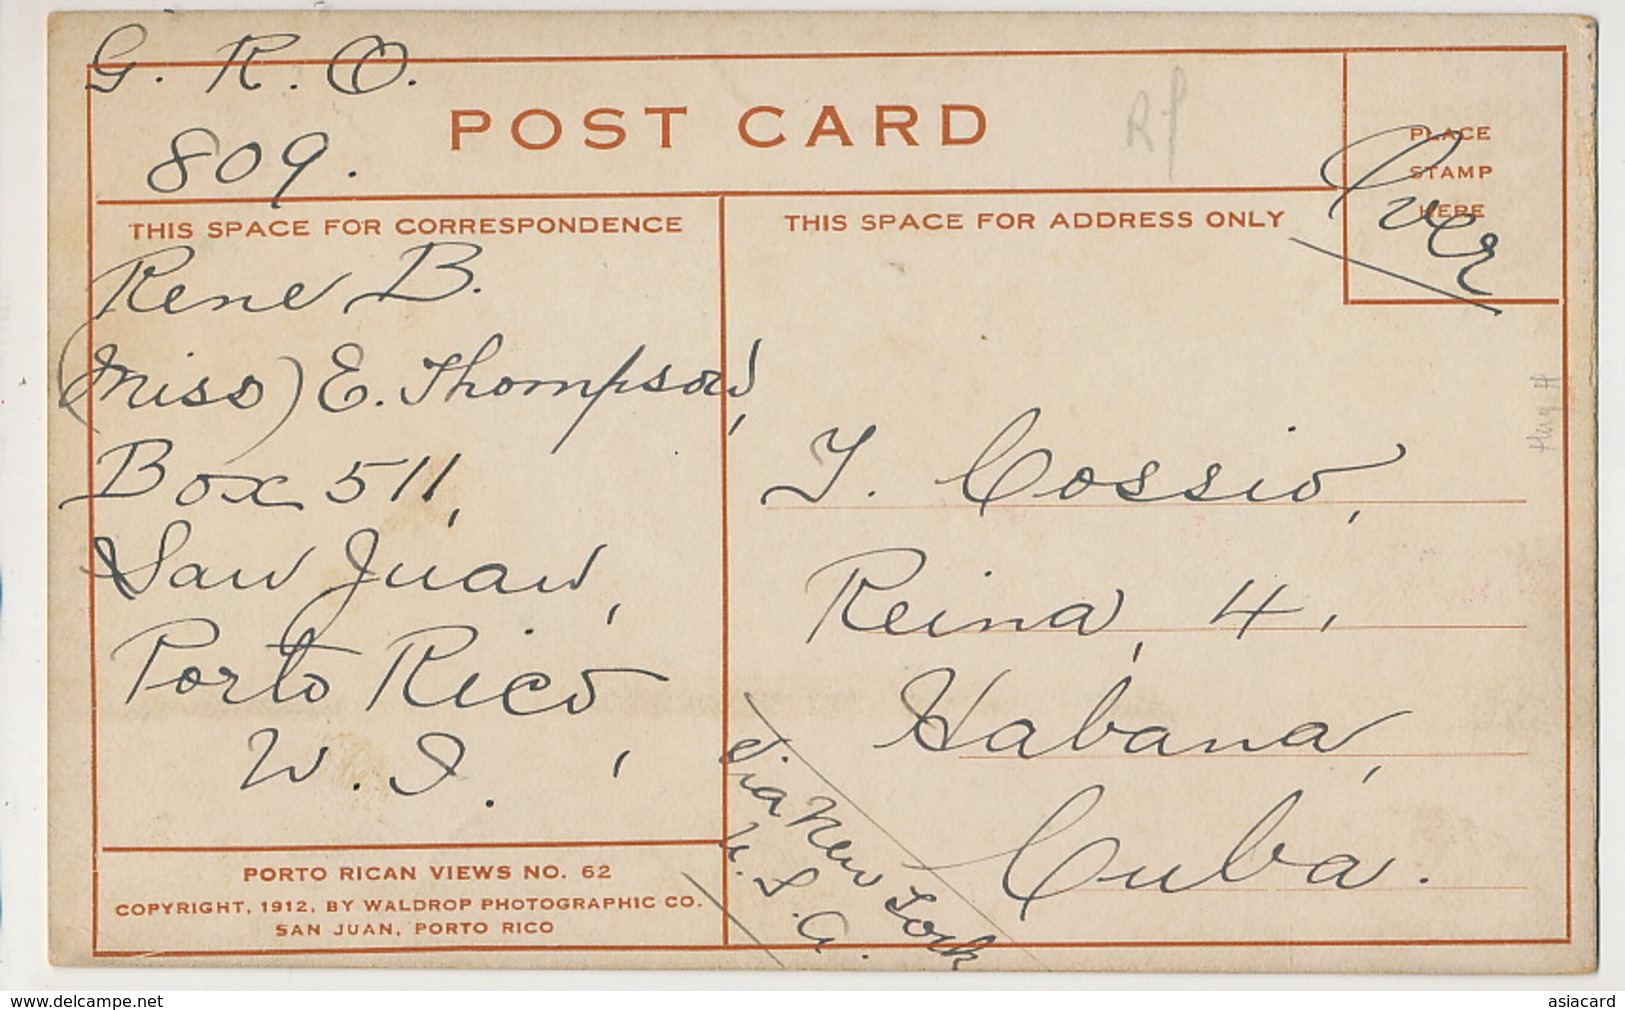 G. R. O.
809.
POST CARD
RP
PLACE
STAMP
HERE
Over
THIS SPACE FOR CORRESPONDENCE
Rene B.
(Miss) E. Thompson,
Box 511,
San Juan,
Porto Rico,
W. I.
THIS SPACE FOR ADDRESS ONLY
J. Cossio,
Reina, 4,
Habana,
Cuba.
Via New York
U. S. A.
PORTO RICAN VIEWS NO. 62
COPYRIGHT, 1912, BY WALDROP PHOTOGRAPHIC CO.
SAN JUAN, PORTO RICO
www.delcampe.net
asiacard